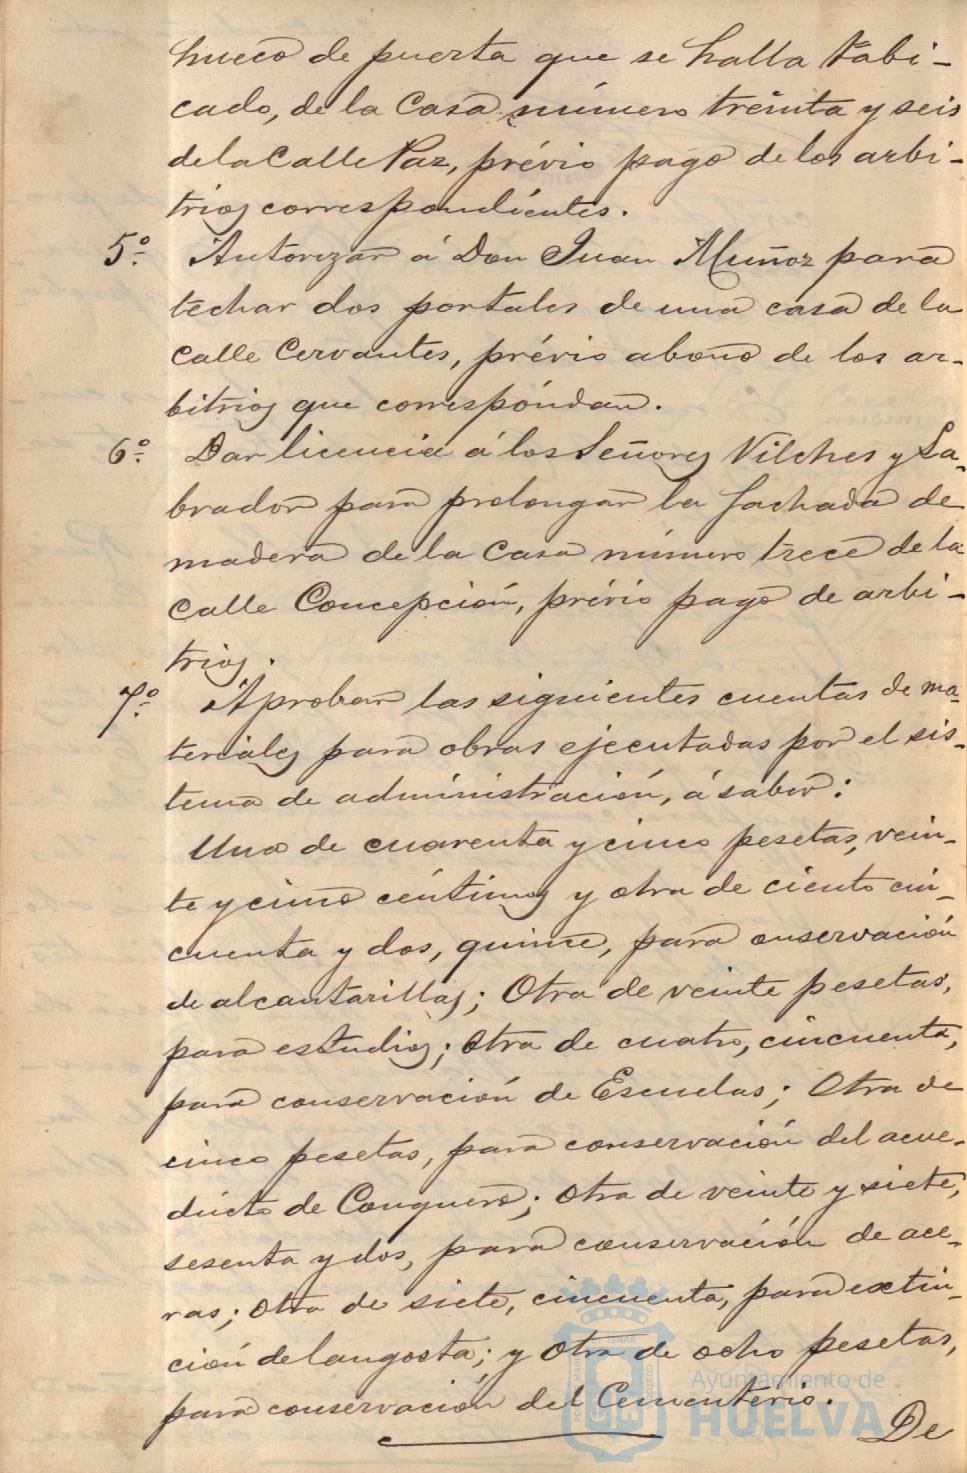 hueco de puerta que se halla tabi-
cado, de la Casa número treinta y seis
de la Calle Paz, prévio pago de los arbi-
trios correspondientes.
5º Autorizar á Don Juan Muñoz para
techar dos portales de una casa de la
Calle Cervantes, prévio abono de los ar-
bitrios que correspóndan.
6º Dar licencia á los Señores Vilches y La-
brador para prolongar la fachada de
madera de la Casa número trece de la
Calle Concepción, prévio pago de arbi-
trios.
7º Aprobar las siguientes cuentas de ma-
teriales para obras ejecutadas por el sis-
tema de administración, á saber:
Una de cuarenta y cinco pesetas, vein-
te y cinco céntimos y otra de ciento cin-
cuenta y dos, quince, para conservación
de alcantarillas; Otra de veinte pesetas,
para estudios; Otra de cuatro, cincuenta,
para conservación de Escuelas; Otra de
cinco pesetas, para conservación del acue-
ducto de Conquero; Otra de veinte y siete,
sesenta y dos, para conservación de ace-
ras; Otra de siete, cincuenta, para extin-
ción de langosta; y Otra de ocho pesetas,
para conservación del Cementerio.
De
Ayuntamiento de
HUELVA